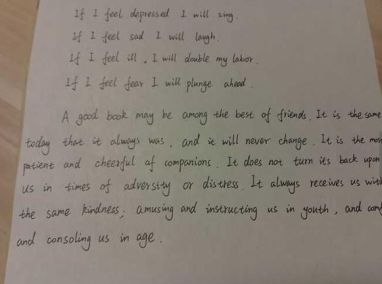 If I feel depressed I will sing
If I feel sad I will laugh.
If I feel ill, I will double my labor.
If I feel fear I will plunge ahead.
A good book may be among the best of friends. It is the same
today that it always was, and it will never change. It is the most
patient and cheerful of companions. It does not turn its back upon
us in times of adversity or distress. It always receives us with
the same kindness; amusing and instructing us in youth, and
and consoling us in age.